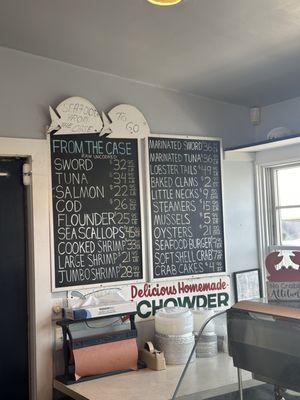 SEAFOOD
FROM
THE CASE
TO
GO
FROM THE CASE
RAW UNCOOKED
SWORD $32
TUNA $34
SALMON $22
COD $26
FLOUNDER $25
SEA SCALLOPS $45
COOKED SHRIMP $33
LARGE SHRIMP $21
JUMBO SHRIMP $28
MARINATED SWORD $36
MARINATED TUNA $36
LOBSTER TAILS $49
BAKED CLAMS $2
LITTLE NECKS $9
STEAMERS $15
MUSSELS $5
OYSTERS $21
SEAFOOD BURGER $7
SOFTSHELL CRAB $7
CRAB CAKES $4
Delicious Homemade
CHOWDER
No Crabby
Attitudes